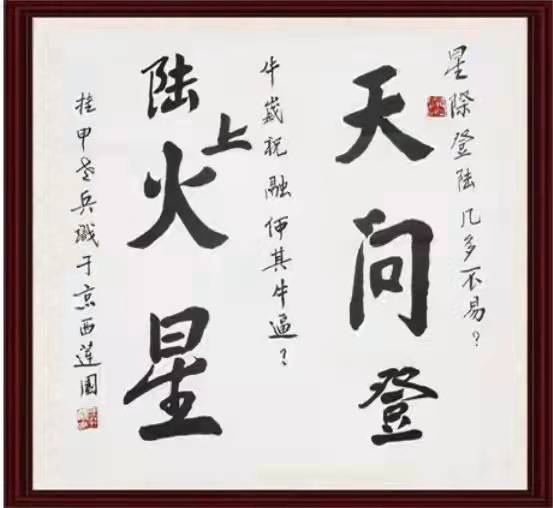 星際登陆几多不易？
天问登
牛嵗祝融何其牛逼？
陆上火星
挂甲老兵于京西莲園